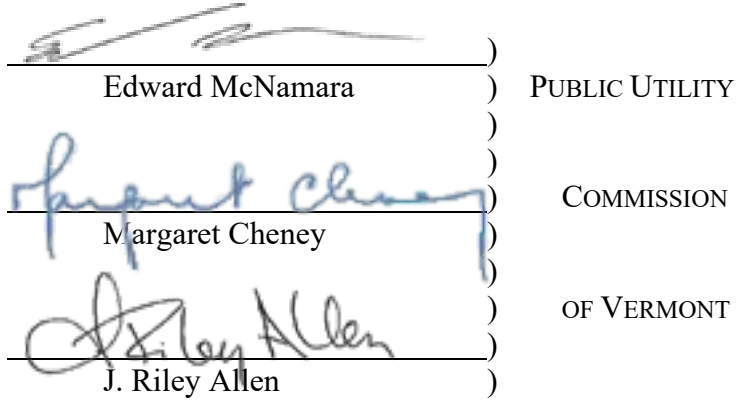 )
Edward McNamara ) PUBLIC UTILITY
)
)
Margaret Cheney ) COMMISSION
Margaret Cheney )
)
) OF VERMONT
J Riley Allen )
J. Riley Allen )